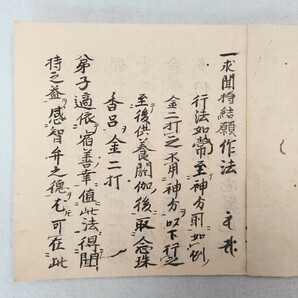 一求聞持結願作法
行法如常至神分所如例
金二打之不用神分以下行之
至後供養閼伽後取念珠
香呂金二打
弟子適依宿善幸値此法得聞
持之益感智弁之徳尤可在此